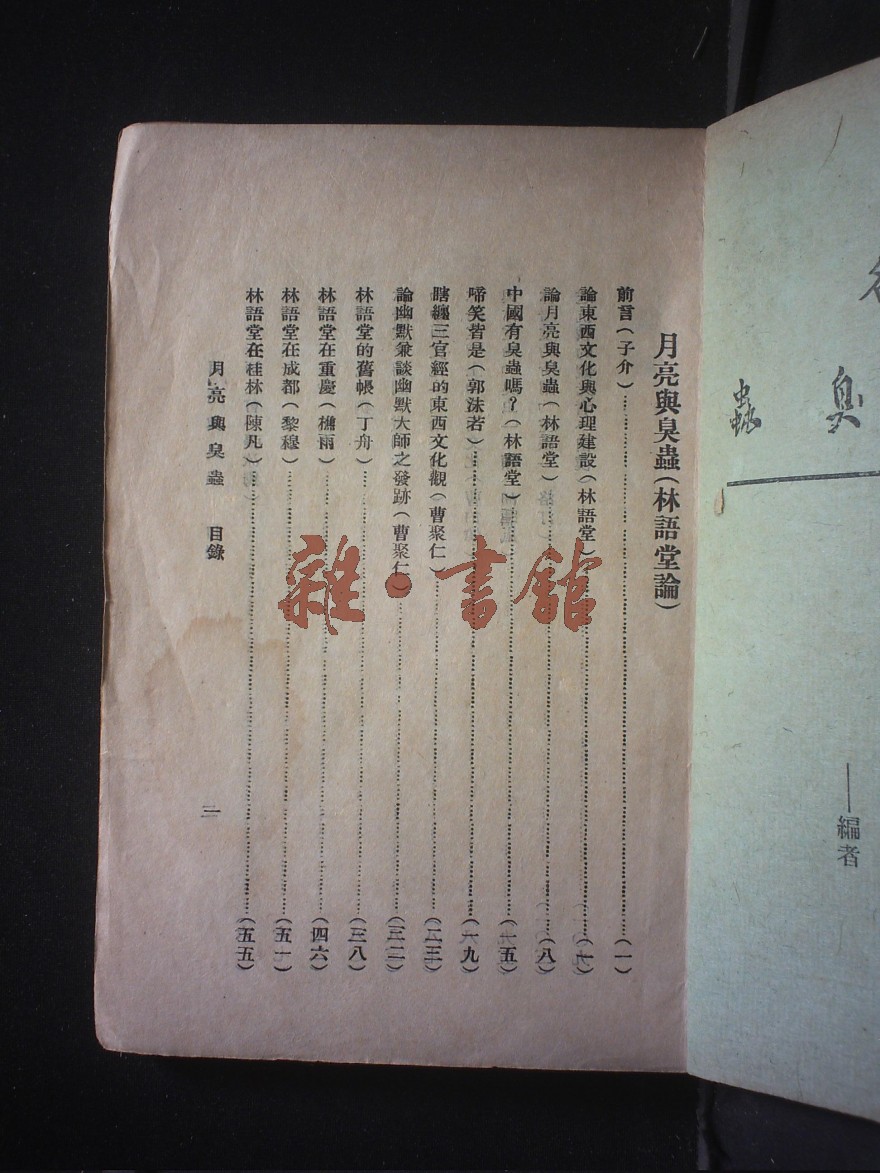 臭
蟲
——編者
月亮與臭蟲（林語堂論）
前言（子介）……（一）
論東西文化與心理建設（林語堂）……（一）
論月亮與臭蟲（林語堂）……（八）
中國有臭蟲嗎？（林語堂）……（一五）
啼笑皆是（郭沫若）……（一九）
瞎纏三官經的東西文化觀（曹聚仁）……（二三）
論幽默兼談幽默大師之發跡（曹聚仁）……（三二）
林語堂的舊帳（丁舟）……（三八）
林語堂在重慶（樵雨）……（四六）
林語堂在成都（黎穆）……（五一）
林語堂在桂林（陳凡）……（五五）
月亮與臭蟲 目錄
雜·書館